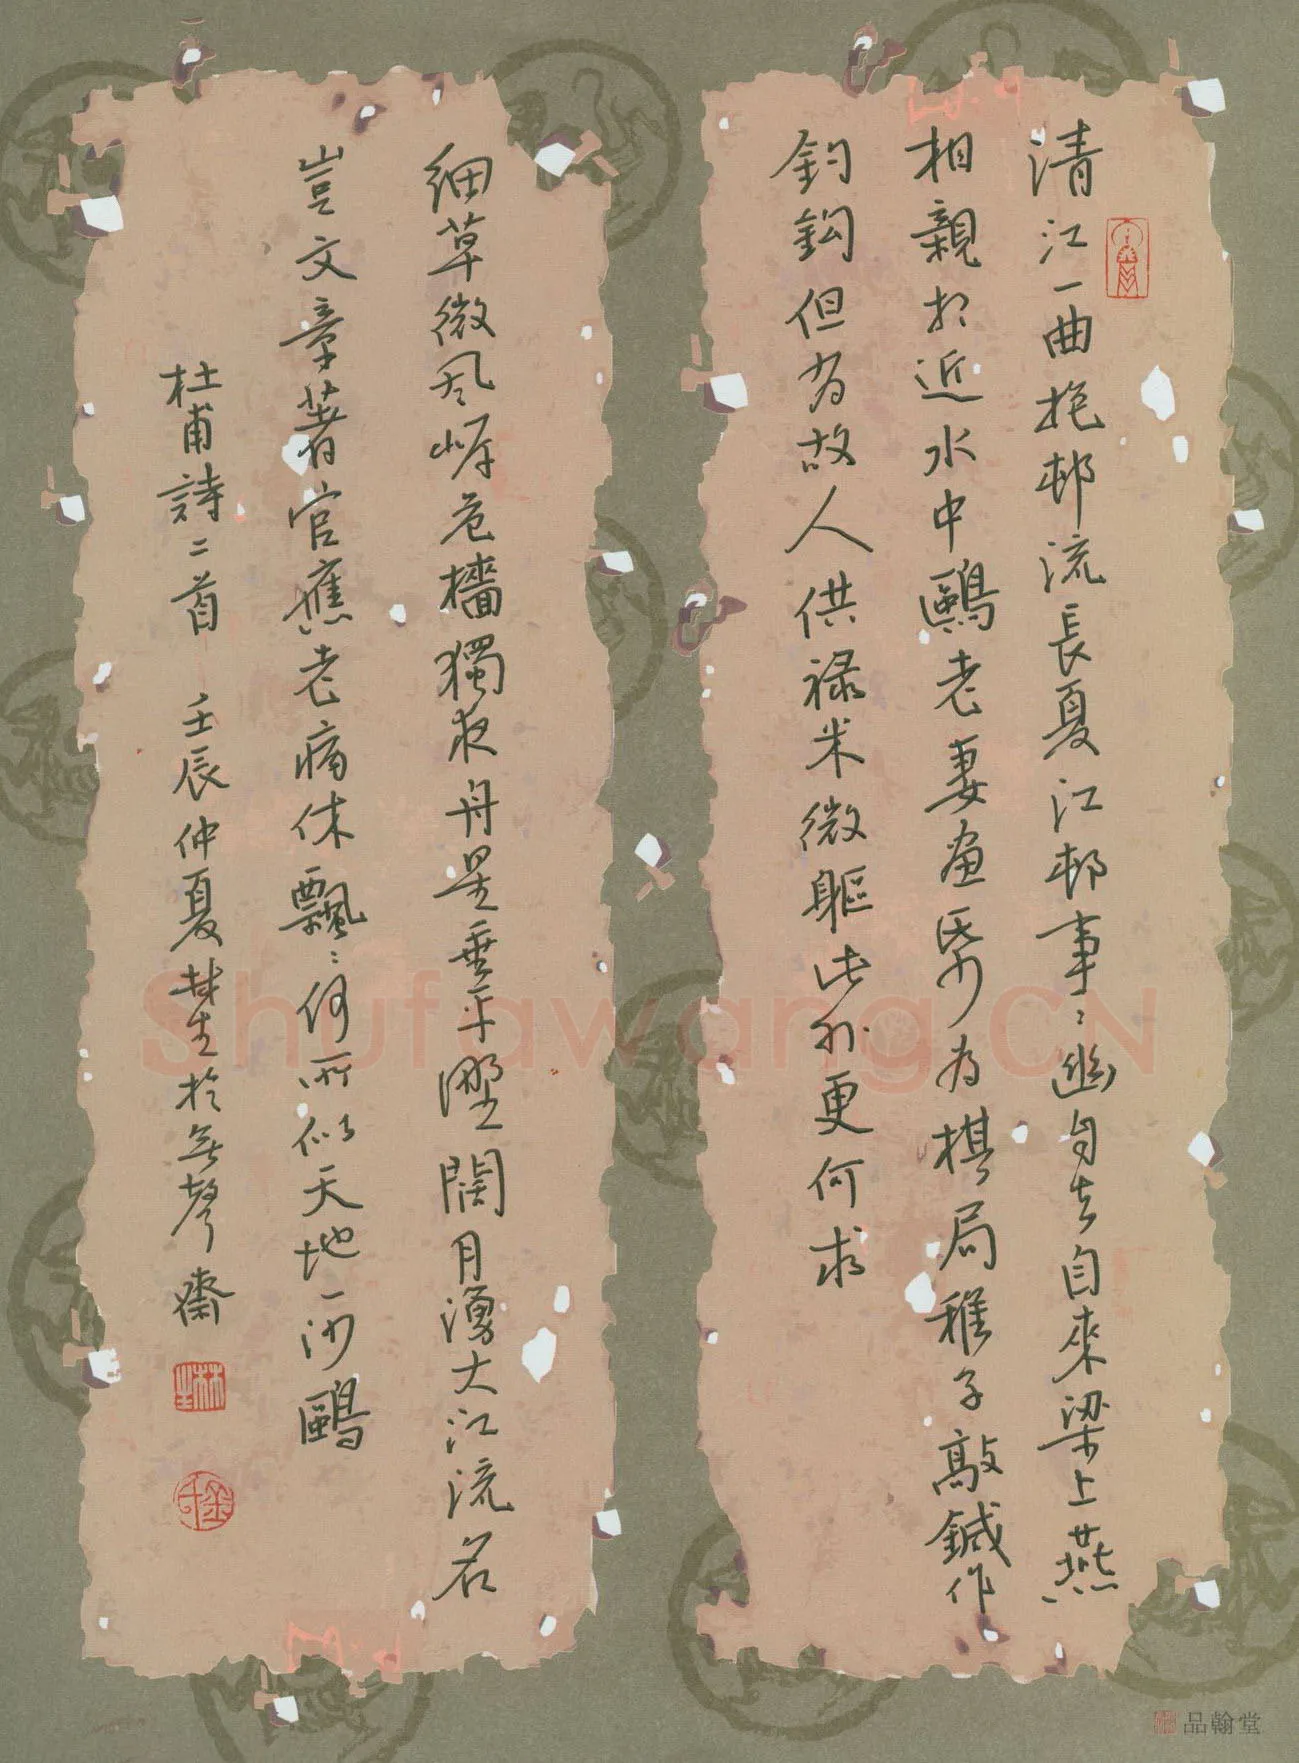 清江一曲抱邨流長夏江邨事〻幽自去自來梁上燕
相親相近水中鷗老妻畫紙為棋局稚子敲鍼作
釣鉤但有故人供祿米微軀此外更何求
細草微風岸危檣獨夜舟星垂平壄闊月湧大江流名
豈文章著官應老病休飄〻何所似天地一沙鷗
杜甫詩二首 壬辰仲夏林生於無聲齋
Shufawang.CN
品翰堂